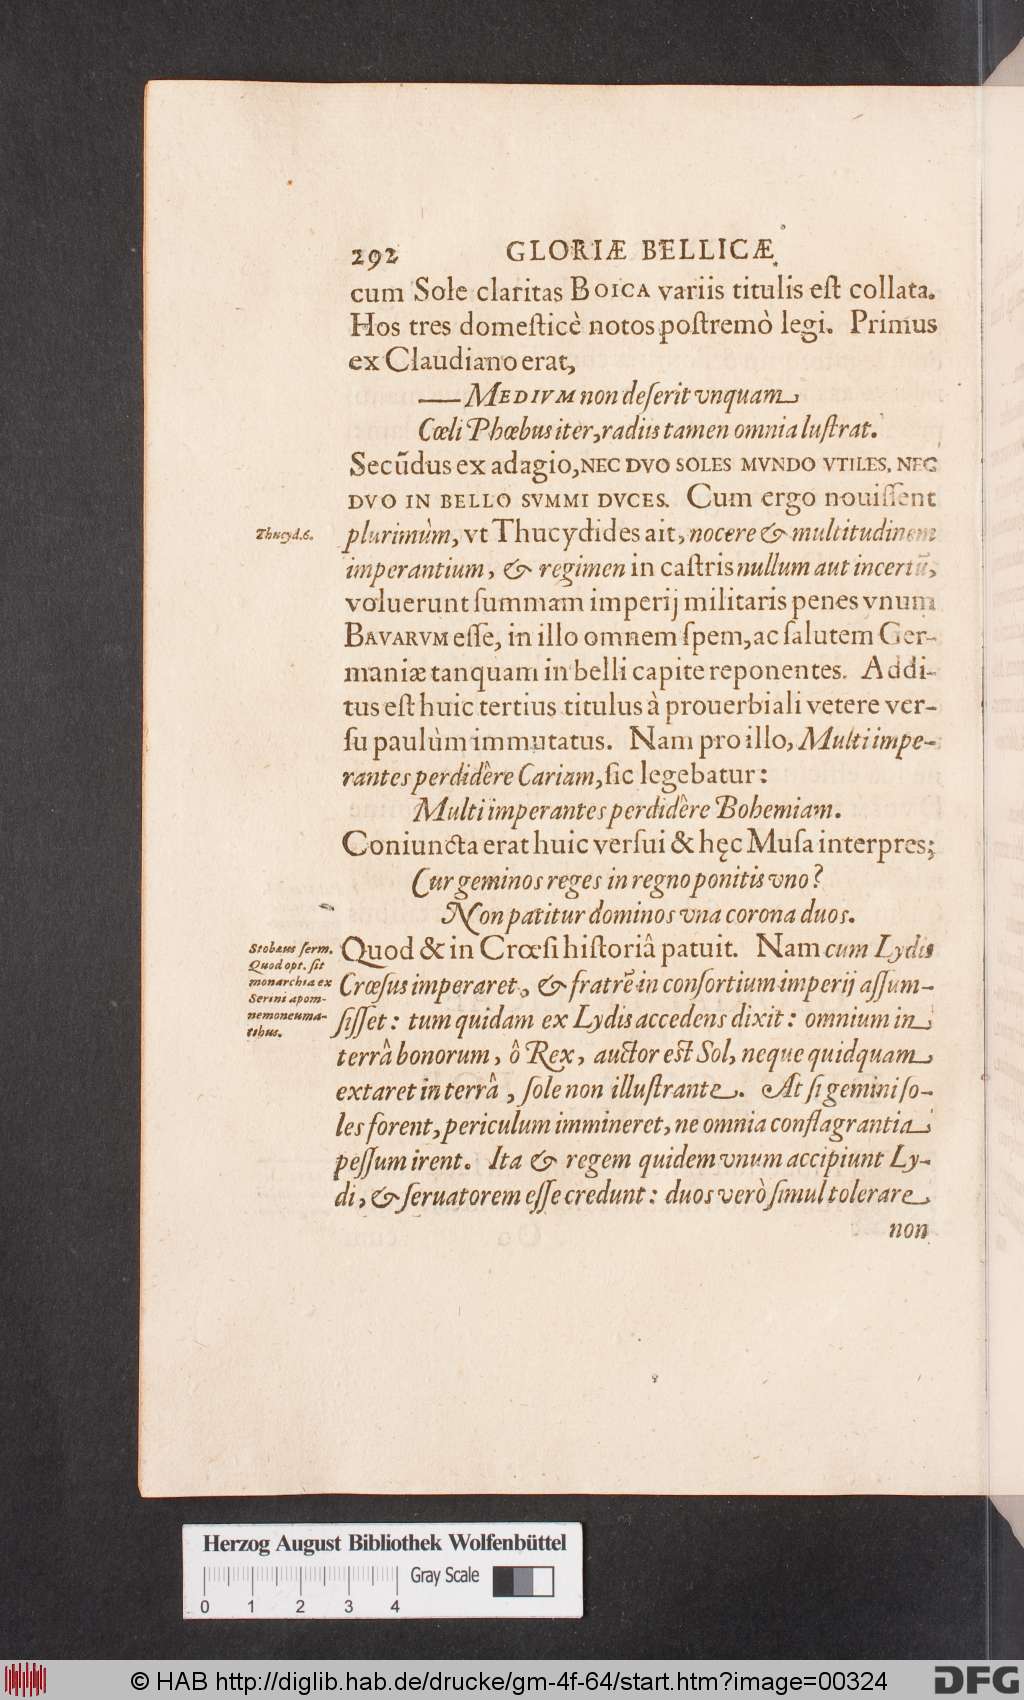 292 GLORIÆ BELLICÆ
cum Sole claritas BOICA variis titulis eſt collata.
Hos tres domeſticè notos poſtremò legi. Primus
ex Claudiano erat,
—— MEDIVM non deſerit vnquam
Cœli Phœbus iter, radiis tamen omnia luſtrat.
Secũdus ex adagio, NEC DVO SOLES MVNDO VTILES, NEC
DVO IN BELLO SVMMI DVCES. Cum ergo nouiſſent
Thucyd. 6.
plurimùm, vt Thucydides ait, nocere & multitudinem
imperantium, & regimen in caſtris nullum aut incertũ,
voluerunt ſummam imperij militaris penes vnum
BAVARVM eſſe, in illo omnem ſpem, ac ſalutem Ger-
maniæ tanquam in belli capite reponentes. Addi-
tus eſt huic tertius titulus à prouerbiali vetere ver-
ſu paulùm immutatus. Nam pro illo, Multi impe-
rantes perdidêre Cariam, ſic legebatur:
Multi imperantes perdidêre Bohemiam.
Coniuncta erat huic verſui & hęc Muſa interpres;
Cur geminos reges in regno ponitis vno?
Non patitur dominos vna corona duos.
Stobæus ſerm.
Quod opt. ſit
monarchia ex
Serini apom-
nemoneuma-
tibus.
Quod & in Crœſi hiſtoriâ patuit. Nam cum Lydis
Crœſus imperaret, & fratrẽ in conſortium imperij aſſum-
ſiſſet: tum quidam ex Lydis accedens dixit: omnium in
terrâ bonorum, ô Rex, auctor eſt Sol, neque quidquam
extaret in terrâ, ſole non illuſtrante. At ſi gemini ſo-
les forent, periculum immineret, ne omnia conflagrantia
peſſum irent. Ita & regem quidem vnum accipiunt Ly-
di, & ſeruatorem eſſe credunt: duos verò ſimul tolerare
non
Herzog August Bibliothek Wolfenbüttel
Gray Scale
0 1 2 3 4
© HAB http://diglib.hab.de/drucke/gm-4f-64/start.htm?image=00324
DFG